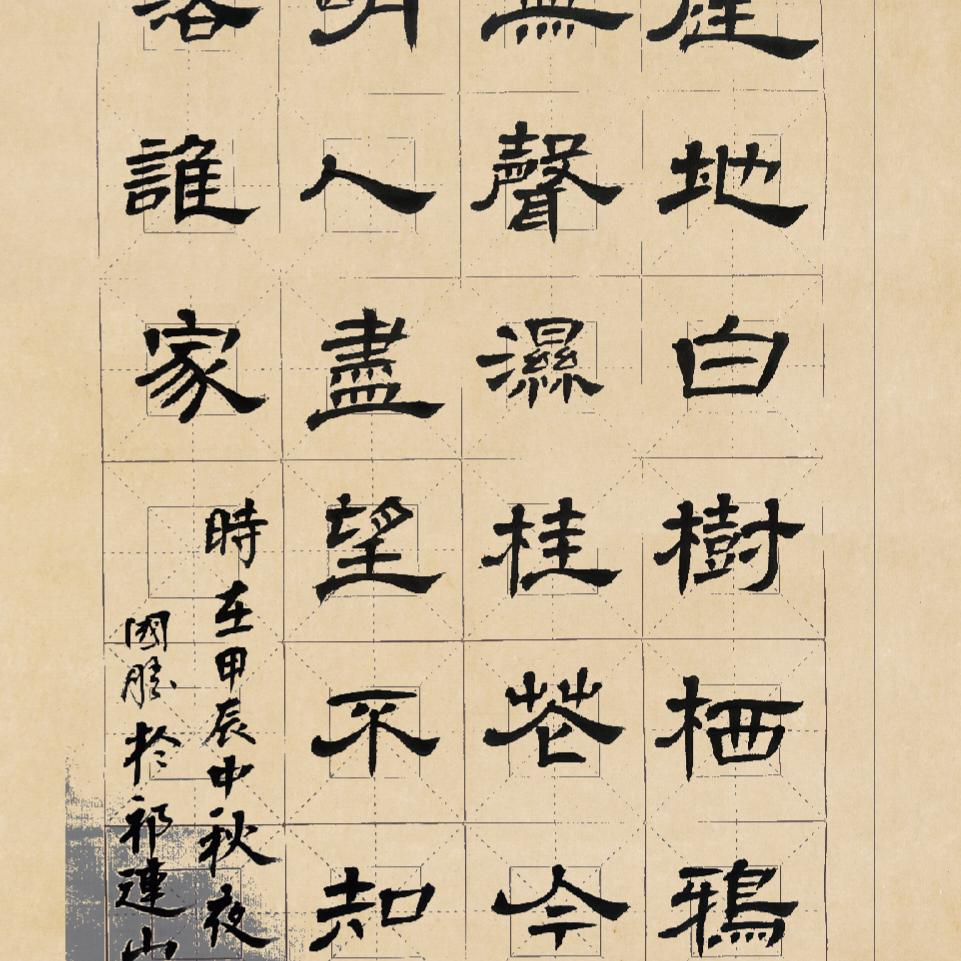 庭地白樹栖鴉
無聲濕桂花今
明人盡望不知
落誰家
時在甲辰中秋夜
國勝於祁連山